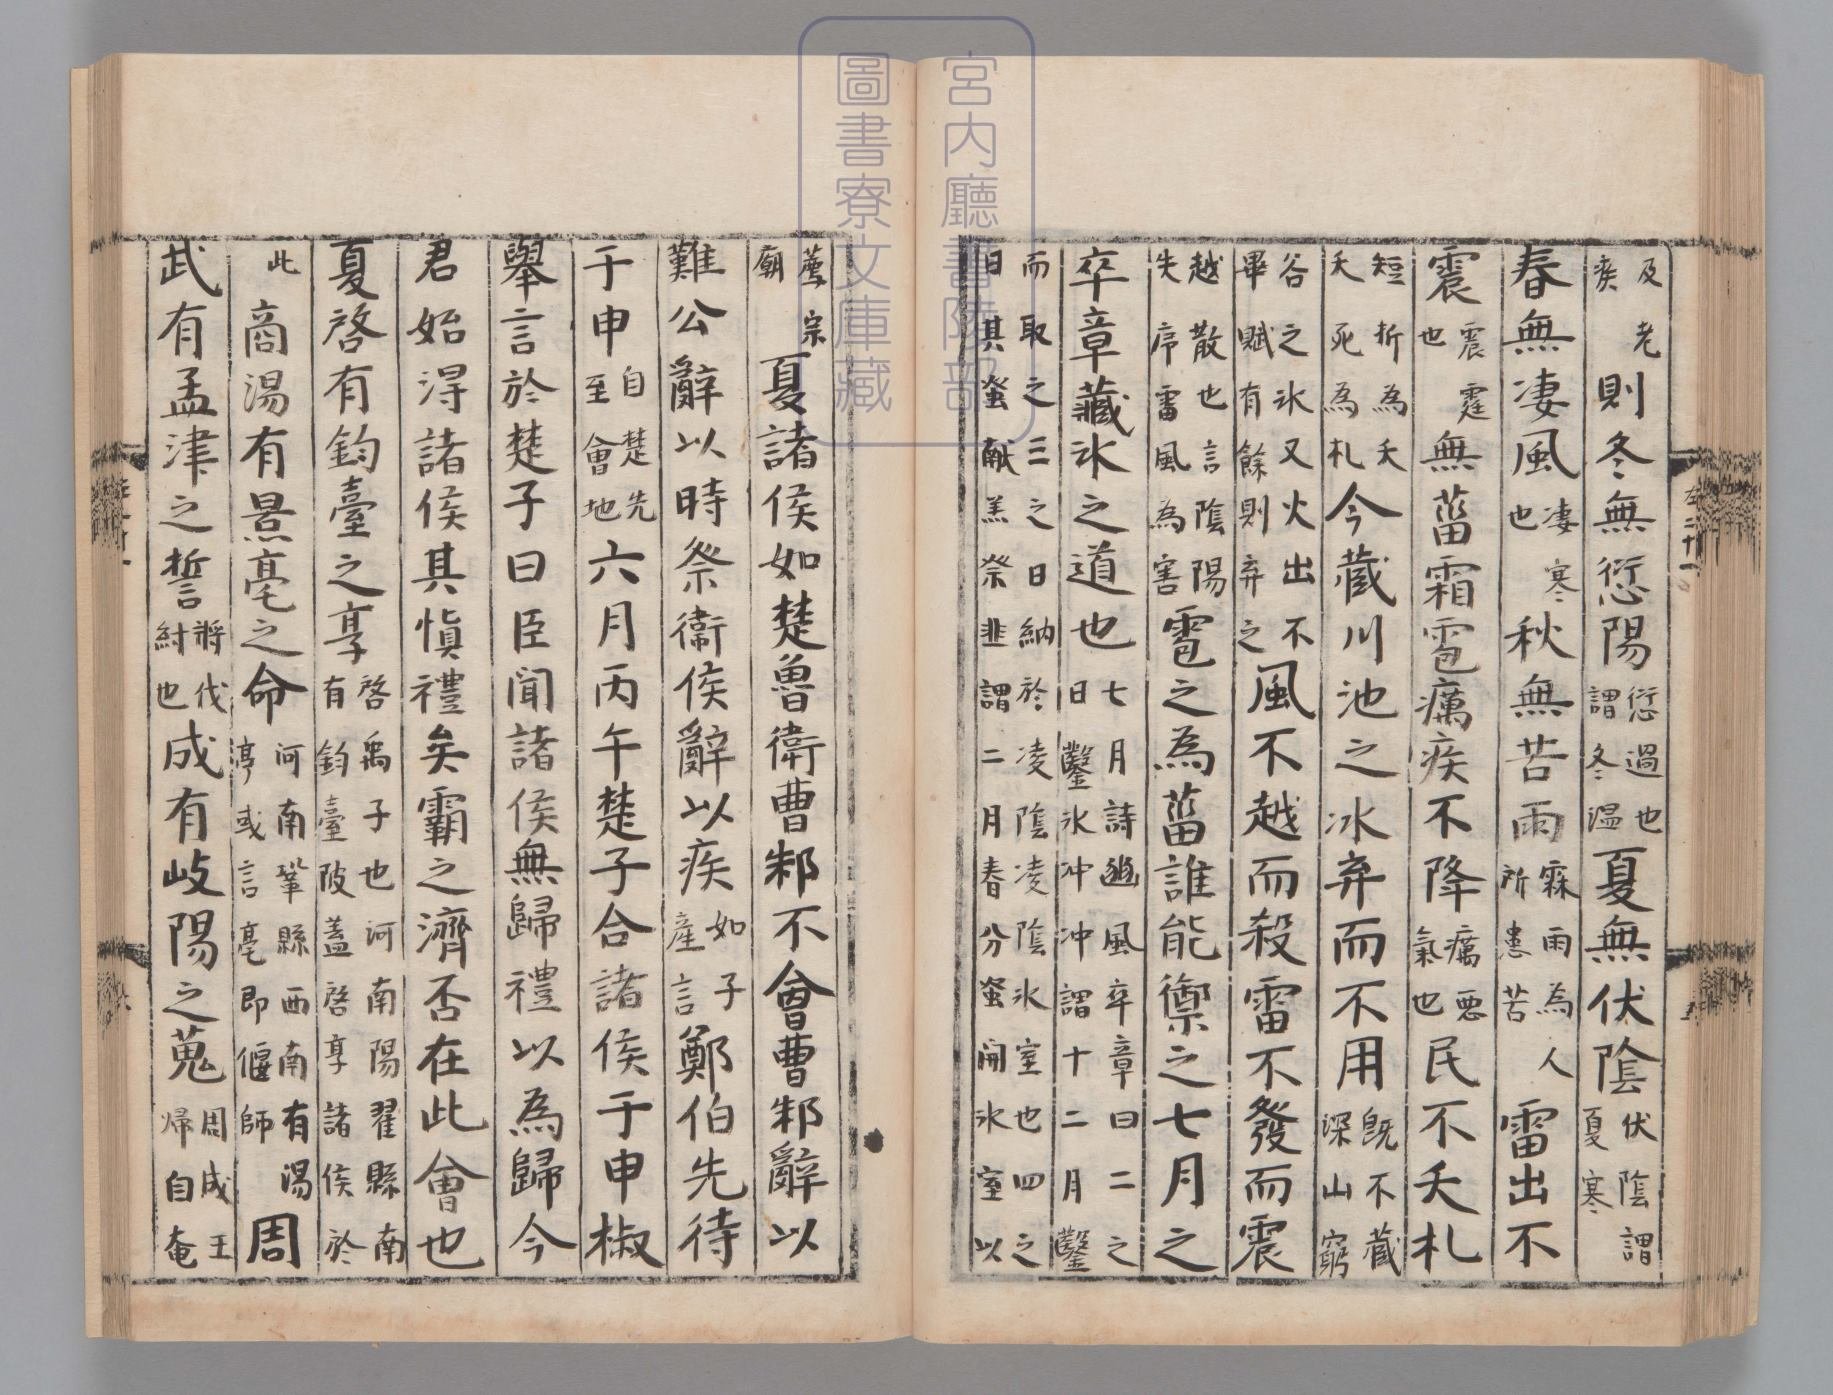 及老疾則冬無愆陽愆過也謂冬温夏無伏陰伏陰謂夏寒
春無凄風凄寒也秋無苦雨霖雨為人所患苦雷出不
震震霆也無菑霜雹癘疾不降癘惡氣也民不夭札
短折為夭夭死為札今藏川池之冰弃而不用既不藏深山窮
谷之氷又火出不畢賦有餘則弃之風不越而殺雷不發而震
越散也言陰陽失序雷風為害雹之為菑誰能禦之七月之
卒章藏氷之道也七月詩豳風卒章曰二之日鑿氷冲冲謂十二月鑿
而取之三之日納於凌陰凌陰氷室也四之日其蚤献羔祭韭謂二月春分蚤開氷室以
薦宗廟夏諸侯如楚魯衛曹邾不會曹邾辭以
難公辭以時祭衛侯辭以疾如子產言鄭伯先待
于申自楚先至會地六月丙午楚子合諸侯于申椒
舉言於楚子曰臣聞諸侯無歸禮以為歸今
君始得諸侯其慎禮矣霸之濟否在此會也
夏啓有鈞臺之享啓禹子也河南陽翟縣南有鈞臺陂蓋啓享諸侯於
此商湯有景亳之命河南鞏縣西南有湯渟或言亳即偃師周
武有孟津之誓將伐紂也成有岐陽之蒐周成王歸自奄
左二十一
宮内廳書陵部
圖書寮文庫藏